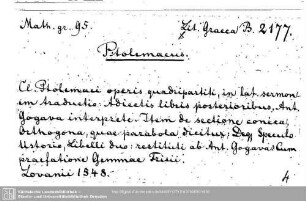 Math. gr. 95.
Lit. Graeca B. 2177.
Ptolemaeus.
Cl Ptolemaei operis quadripartiti, in lat. sermon
em traductio: Adiectis libris posterioribus, Ant.
Gogava interprete. Item de sectione conica,
orthogona, quae parabola dicitur; Deq Speculo
Ustorio, Libelli duo: restituti ab Ant. Gogavi Cum
praefatione Gemmae Frisii.
Lovanii 1548.
4